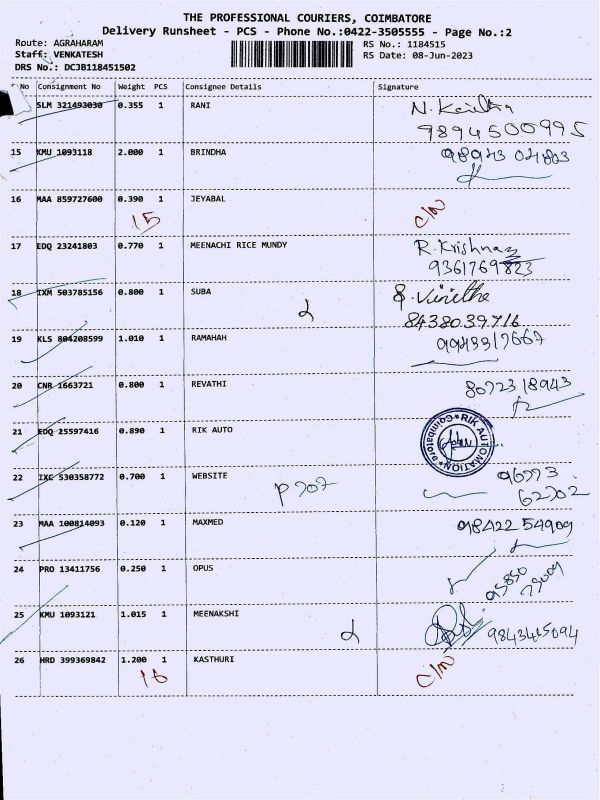 THE PROFESSIONAL COURIERS, COIMBATORE
Delivery Runsheet - PCS - Phone No.:0422-3505555 - Page No.:2
Route: AGRAHARAM RS No.: 1184515
Staff: VENKATESH RS Date: 08-Jun-2023
DRS No.: DCJB118451502
No Consignment No Weight PCS Consignee Details Signature
SLM 321493030 0.355 1 RANI
9894500995
15 KMU 1093118 2.000 1 BRINDHA 98943 04803
16 MAA 859727600 0.390 1 JEYABAL C/N
15
17 EDQ 23241803 0.770 1 MEENACHI RICE MUNDY R. Krishnaz
9361769823
18 IXM 503785156 0.800 1 SUBA
8438039716
19 KLS 804208599 1.010 1 RAMAHAH 9943317667
20 CNR 1663721 0.800 1 REVATHI 8072318943
21 EDQ 25597416 0.890 1 RIK AUTO RIK AUTOMATION Coimbatore
22 IXC 530358772 0.700 1 WEBSITE
23 MAA 100814093 0.120 1 MAXMED 98422 54909
24 PRO 13411756 0.250 1 OPUS
25 KMU 1093121 1.015 1 MEENAKSHI 9843415094
26 HRD 399369842 1.200 1 KASTHURI C/N
16